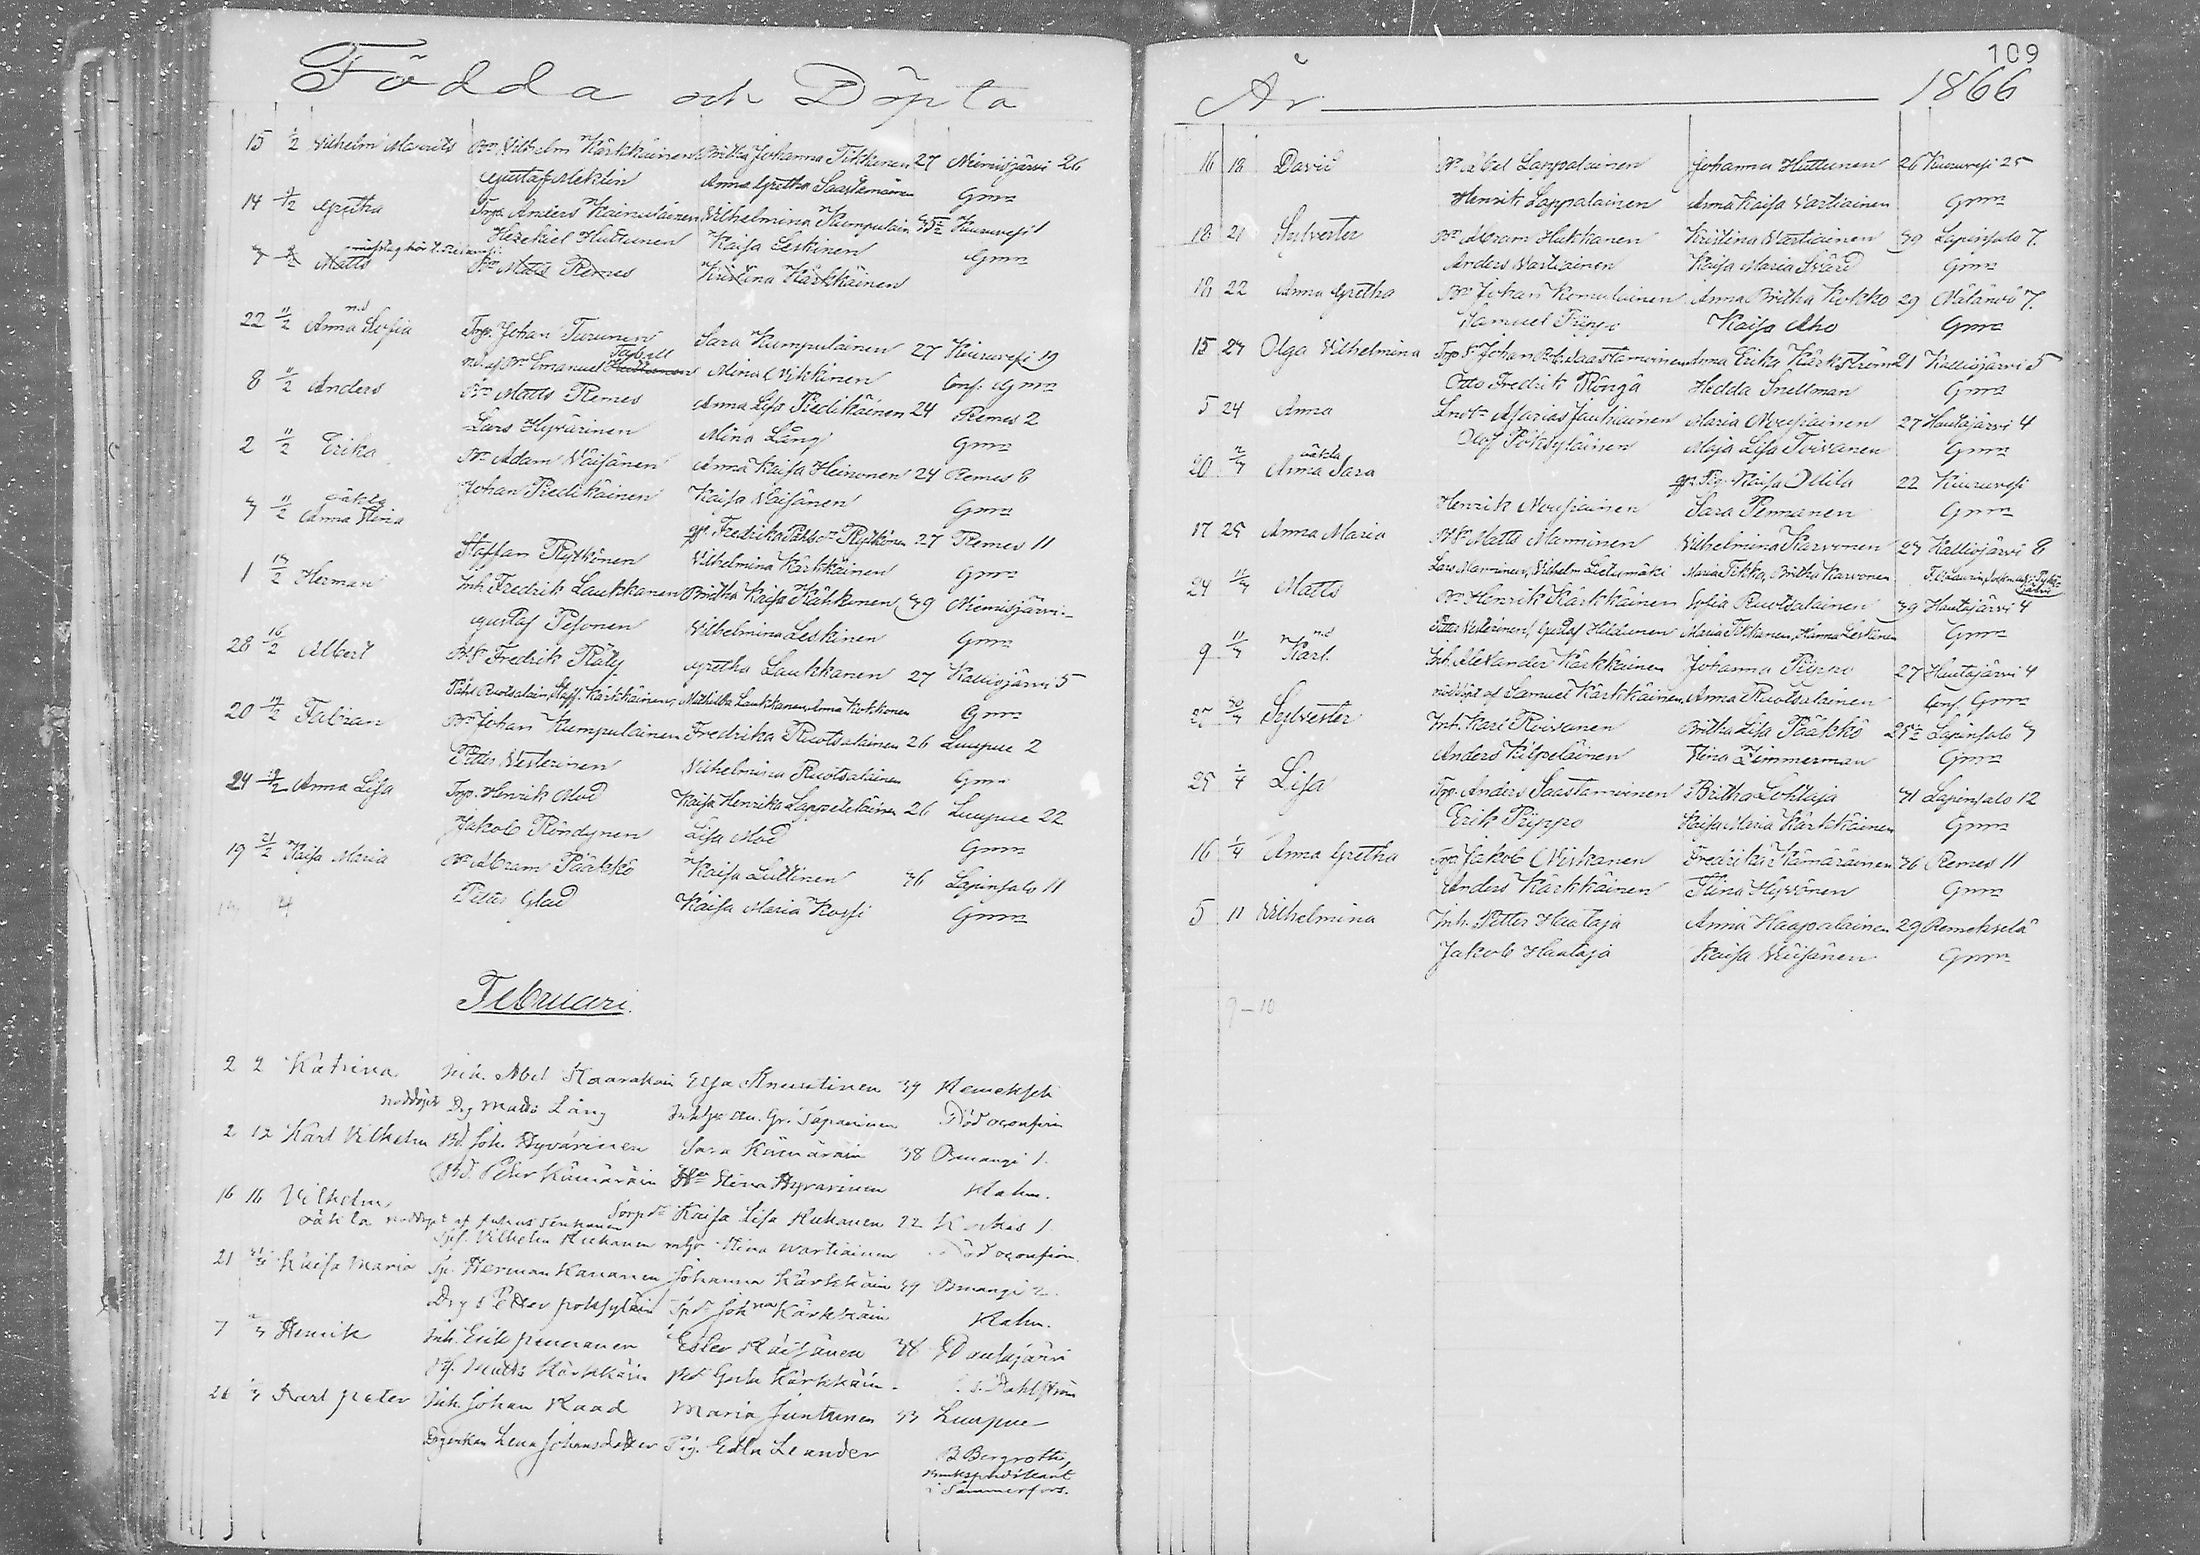 Födda och Döpta
15 1/2 Vilhelm Maurits Bn Vilhelm Kärkkäinen Britha Johanna Tikkanen 27 Niemisjärvi 26
Gustaf Meklin Anna Gretha Saastamoinen Gnm
14 9/2 Gretha Torp. Anders Kainulainen Vilhelmina Kumpulain 35 Kiuruvesi 1
Hezekiel Huttunen Kaisa Leskinen Gnm
Matts Bn Matts Remes Kristina Kärkkäinen
nd
22 11/2 Anna Sofia Torp. Johan Turunen Sara Kumpulainen 27 Kiuruvesi 19
nd. af Bn Emanuel Mina Nikkinen Conf. Gnm
8 11/2 Anders Bn Matts Remes Anna Lisa Riedikäinen 24 Remes 2
Lars Hyvärinen Mina Lång Gnm
2 11/2 Erika Bn Adam Väisänen Anna Kaisa Heinonen 24 Remes 8
Johan Riedikäinen Kaisa Väisänen Gnm
oäkta
7 11/2 Anna Stina gft. Fredrika Påhlsdr Rytkönen 27 Remes 11
Staffan Rytkönen Vilhelmina Kärkkäinen Gnm
1 13/2 Herman Inh. Fredrik Laukkanen Britha Kaisa Kähkönen 39 Niemisjärvi
Gustaf Pesonen Vilhelmina Leskinen Gnm
28 16/2 Albert Fredrik Räty Gretha Laukkanen 27 Kalliojärvi 5
Påhl Ruotsalain, Staff. Kärkkäinen, Mathilda Laukkanen, Anna Kokkonen Gnm
20 Fabian Bn Johan Kumpulainen Fredrika Ruotsalainen 26 Luupue 2
Petter Westerinen Vilhelmina Ruotsalainen Gnm
24 19/2 Anna Lisa Torp. Henrik Mod Kaisa Henrika Lappeteläinen 26 Luupue 22
Jakob Röndynen Lisa Mod Gnm
19 21/2 Kaisa Maria Bn Abram Pääkkö Kaisa Luttinen 36 Lapinsalo 11
Petter Glad Kaisa Maria Kossi Gnm
Februari.
2 2 Katrina Inh. Abel Elsa Knuutinen 39 Remeksele
nöddöpt Drg Matts Lång Gr. Tapaninen Död oconfirm
2 12 Karl Vilhelm Bd. Joh. Hyvärinen Sara Kämäräin 38 Osmangi 1.
Bd. Peter Kämäräin Stina Hyvärinen Hahm.
16 16 Vilhelm Torpdr Kaisa Lisa Kukkonen 22 1
oäkta nöddöpt af
Vilhelm Stina Wartiainen Död oconfirm.
21 Kaisa Maria Herman Kananen Johanna Kärkkäin 39 Osmangi 2.
Drg Petter Poksyläin Kärkkäin Hahm.
7 Henrik Inh. Erik Pennanen Ester Räisänen 38 Hautajärvi
Matts Kärkkäin Greta Kärkkäin Dahlström
26 Karl Peter Inh. Johan Raad Maria Juntunen 33 Luupue
Lena Johansdotter Pig. Edla Leander B Bergroth,
Brukspredikant
i Sumnerfors.
109
År 1866
16 18 David Bn Abel Lappalainen Johanna Huttunen 26 Kiuruvesi 25
Henrik Lappalainen Anna Kaisa Vartiainen Gnm
18 21 Sylvester Bn Abram Hukkanen Kristina Vartiainen 39 Lapinsalo 7.
Anders Vartiainen Kaisa Maria Svärd Gnm
18 22 Anna Gretha Bn Johan Komulainen Anna Britha Kokko 29 Näläntö 7.
Samuel Piippo Kaisa Aho Gnm
15 24 Olga Vilhelmina Johan Rob. Saastamoinen Anna Erika Kärkström 21 Kalliojärvi 5
Otto Fredrik Röngä Hedda Snellman Gnm
5 24 Anna Asarias Jauhiainen Maria Nousiainen 27 Hautajärvi 4
Olof Poksyläinen Maja Lisa Toivanen Gnm
oäkta
20 2/3 Anna Sara gft. Pig. Kaisa Ollila 22 Kiuruvesi
Henrik Nousiainen Sara Pennanen Gnm
17 25 Anna Maria Matts Manninen Vilhelmina Karvonen 23 Kalliojärvi 8
Lars Manninen, Vilhelm Lietumäki Maria Tikka, Britha Karvonen
24 11/3 Matts Bn Henrik Kärkkäinen Sofia Ruotsalainen 39 Hautajärvi 4
Petter Vesterinen, Gustaf Hildunen Maria Tikkanen, Hanna Leskinen Gnm
nd
9 11/3 Karl Inh. Alexander Kärkkäinen Johanna Piippo 27 Hautajärvi 4
nöddöpt af Samuel Kärkkäinen Anna Ruotsalainen Conf. Gnm
25 30/3 Sylvester Inh. Karl Roivanen Britha Lisa Pääkkö 25 Lapinsalo 3
Anders Kilpeläinen Stina Zimmerman Gnm
25 1/4 Lisa Torp. Anders Saastamoinen Britha Lohtaja 31 Lapinsalo 12
Erik Piippo Kaisa Maria Kärkkäinen Gnm
16 1/4 Anna Gretha Torp. Jakob Niskanen Fredrika Kämäräinen 36 Remes 11
Anders Kärkkäinen Stina Hyvönen Gnm
5 11 Vilhelmina Inh. Petter Hautaja Anna Haapalainen 29 Remekselä
Jakob Hautaja Kaisa Väisänen Gnm
9-10